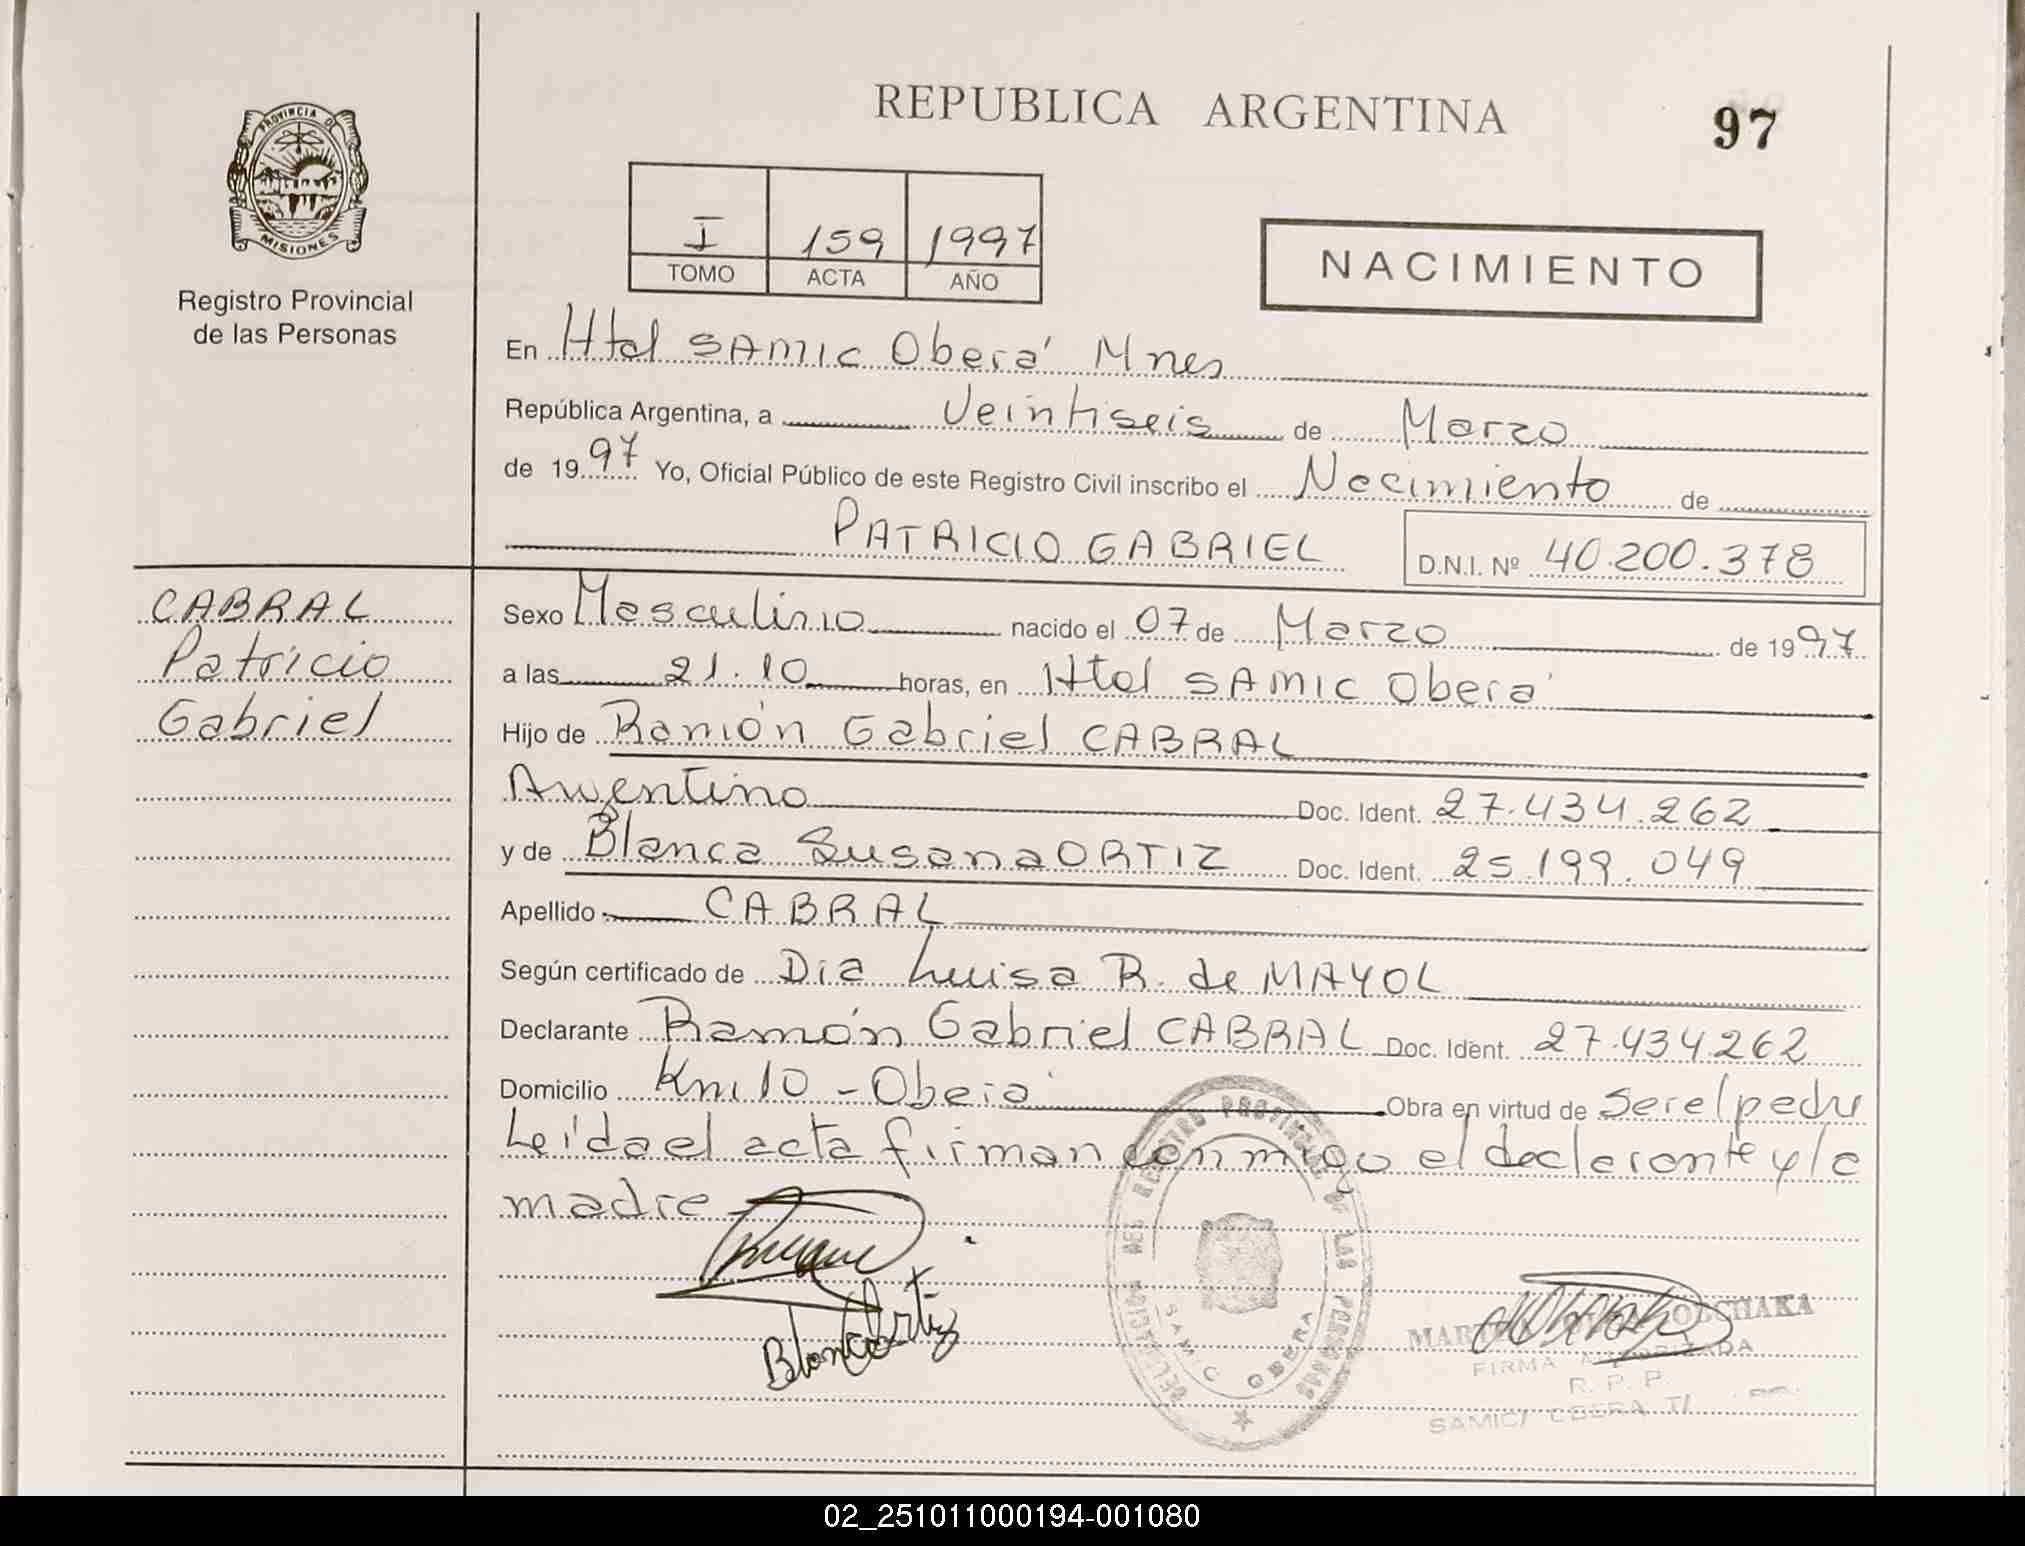 REPUBLICA ARGENTINA
97
PROVINCIA DE
MISIONES
Registro Provincial
de las Personas
I 159 1997
TOMO ACTA AÑO
NACIMIENTO
En Htal SAMIC Oberá Mnes
República Argentina, a Veintiseis de Marzo
de 1997 Yo, Oficial Público de este Registro Civil inscribo el Nacimiento de
PATRICIO GABRIEL D.N.I. Nº 40.200.378
CABRAL
Patricio
Gabriel
Sexo Masculino nacido el 07 de Marzo de 1997
a las 21.10 horas, en Htal SAMIC Oberá
Hijo de Ramón Gabriel CABRAL
Argentino Doc. Ident. 27.434.262
y de Blanca Susana ORTIZ Doc. Ident. 25.199.049
Apellido CABRAL
Según certificado de Dra Luisa R. de MAYOL
Declarante Ramón Gabriel CABRAL Doc. Ident. 27.434262
Domicilio Km 10 - Oberá Obra en virtud de ser el padre
Leída el acta firman conmigo el declarante y la
madre
Blanca Ortiz
DELEGACION DEL REGISTRO PROVINCIAL DE LAS PERSONAS
SAMIC OBERA
FIRMA AUTORIZADA
R. P. P.
SAMIC / OBERA
02_251011000194-001080